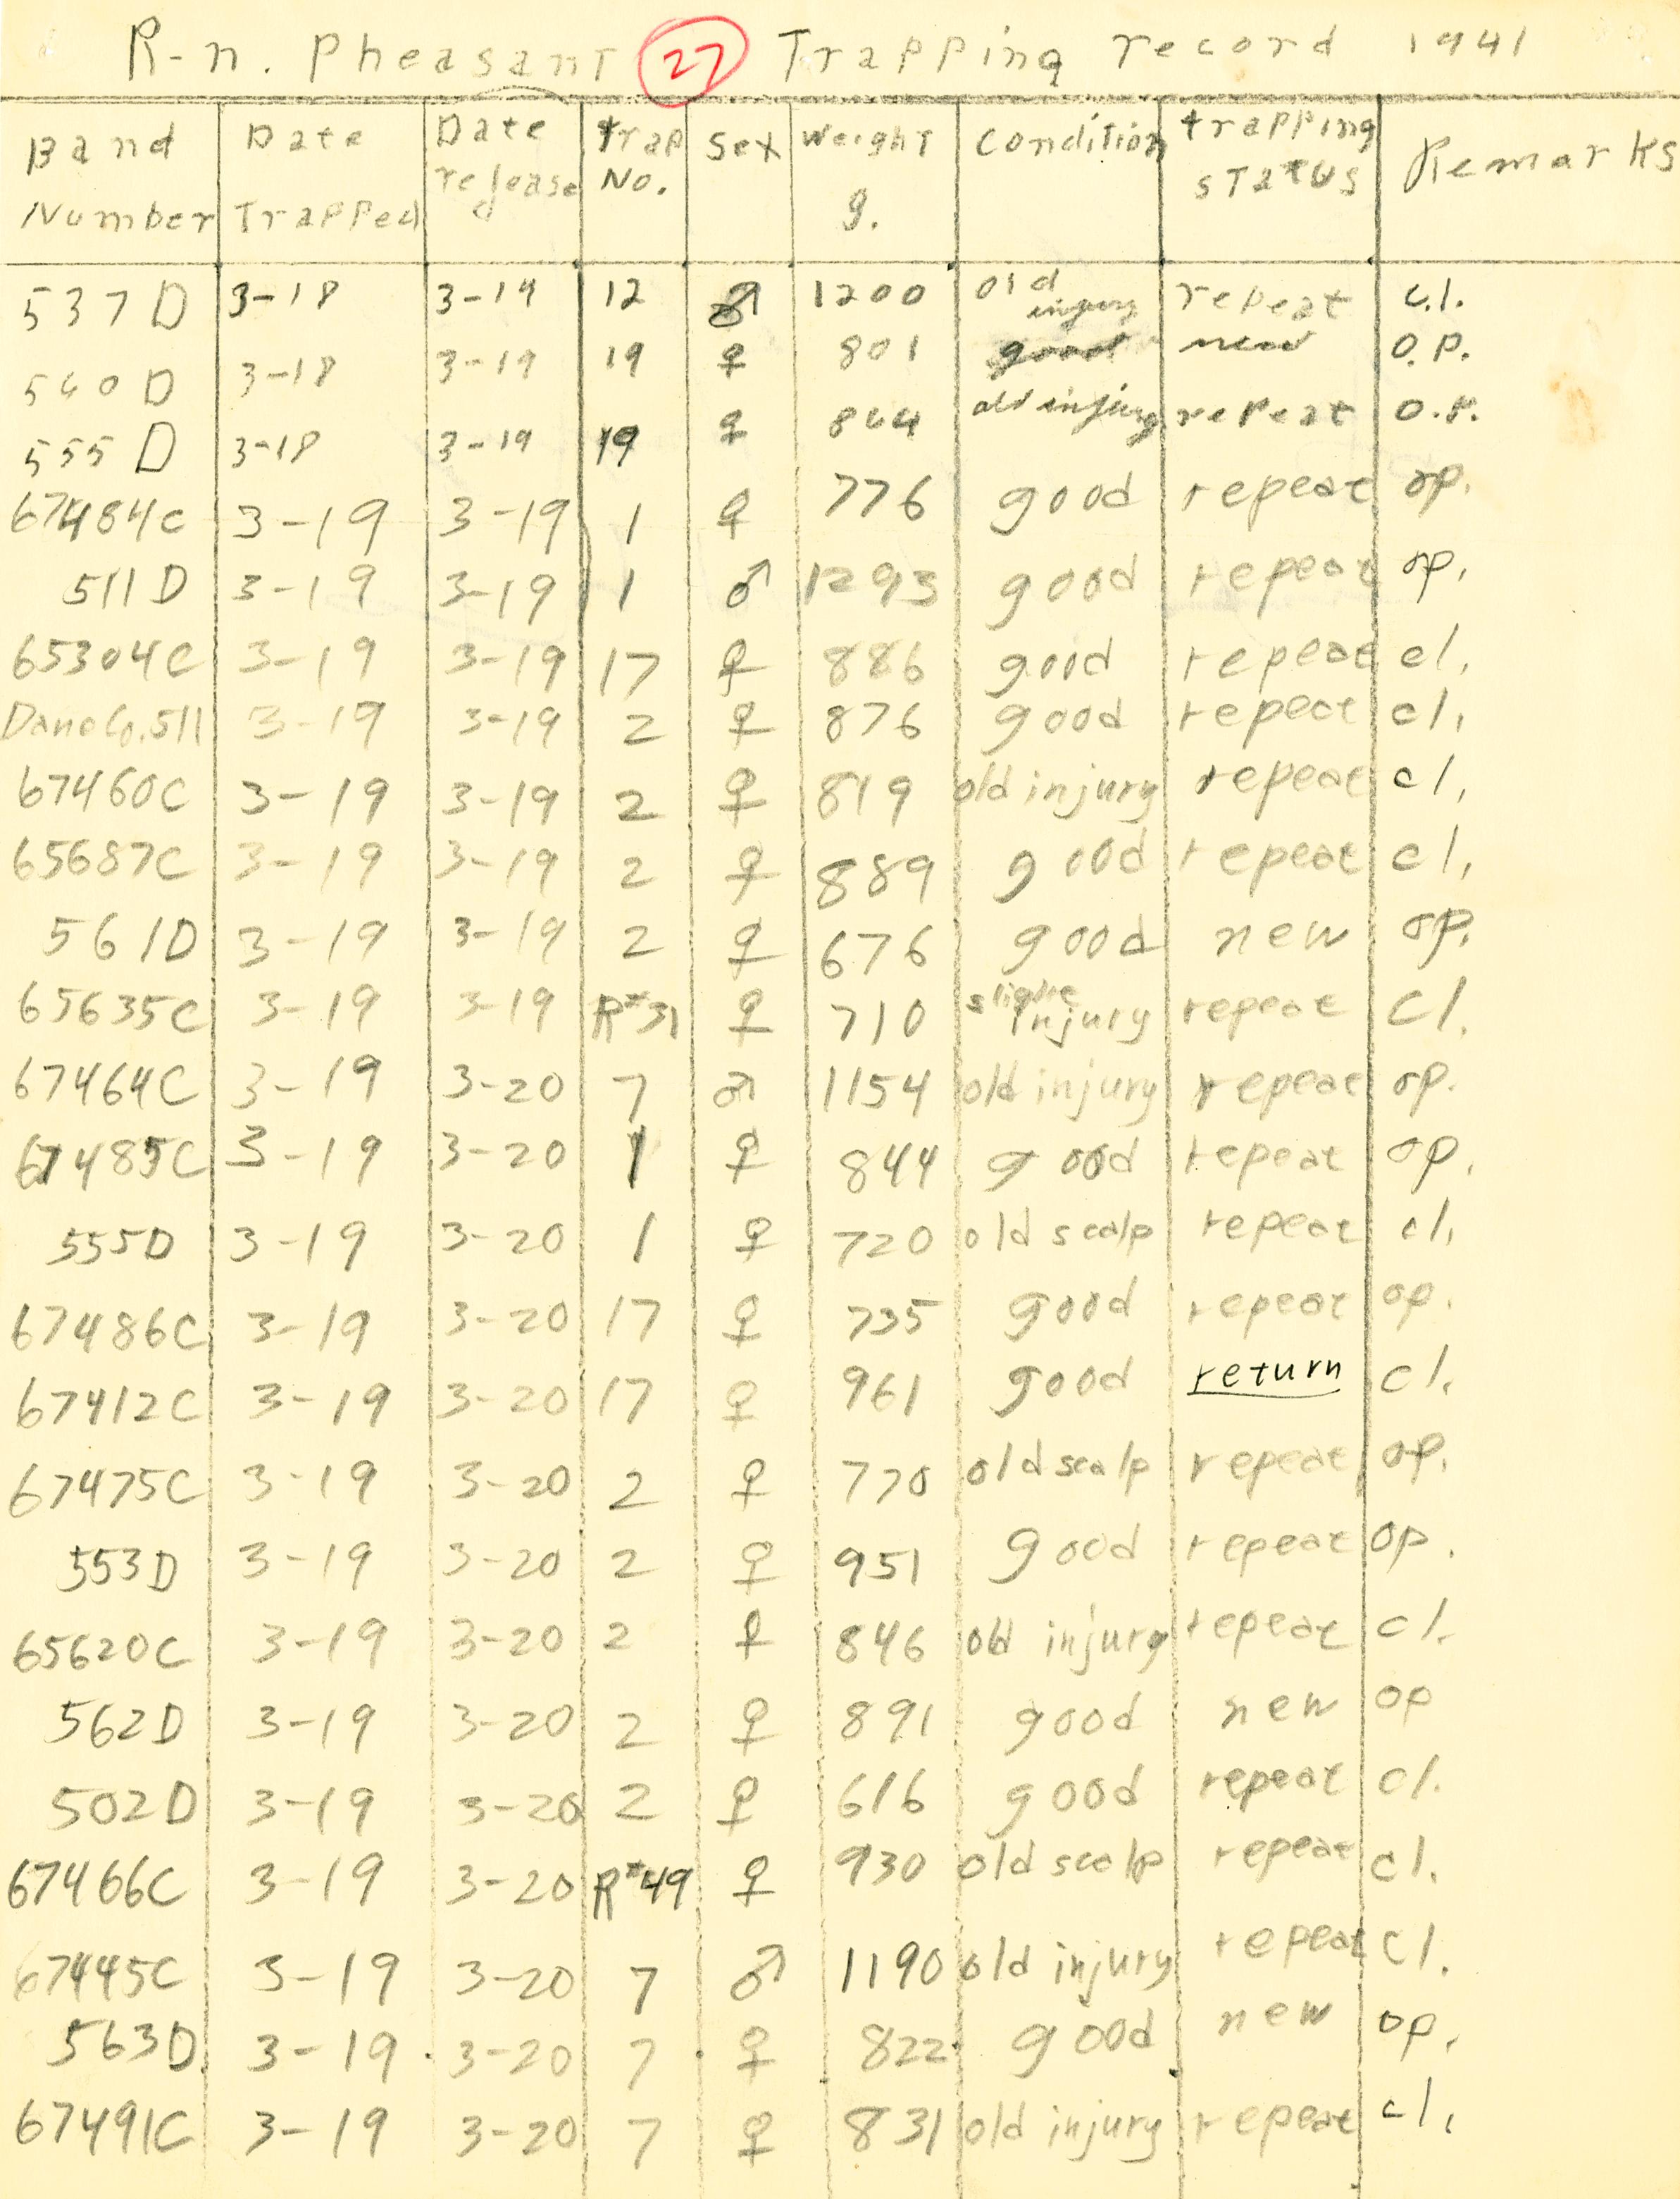 R-n. Pheasant 27 Trapping record 1941
Band Number Date Trapped Date release Trap No. Sex Weight g. Condition trapping status Remarks
537D 3-18 3-19 12 ♂ 1200 old injury repeat c.l.
560D 3-18 3-19 19 ♀ 801 good new o.p.
555D 3-18 3-19 19 ♀ 844 old injury repeat o.p.
67484C 3-19 3-19 1 ♀ 776 good repeat op.
511D 3-19 3-19 1 ♂ 1293 good repeat op.
65304C 3-19 3-19 17 ♀ 886 good repeat cl.
Dane Co. 511 3-19 3-19 2 ♀ 876 good repeat cl.
67460C 3-19 3-19 2 ♀ 819 old injury repeat cl.
65687C 3-19 3-19 2 ♀ 889 good repeat cl.
561D 3-19 3-19 2 ♀ 676 good new op.
65635C 3-19 3-19 R#31 ♀ 710 slight injury repeat cl.
67464C 3-19 3-20 7 ♂ 1154 old injury repeat op.
67485C 3-19 3-20 1 ♀ 844 good repeat op.
555D 3-19 3-20 1 ♀ 720 old scalp repeat cl.
67486C 3-19 3-20 17 ♀ 735 good repeat op.
67412C 3-19 3-20 17 ♀ 961 good return cl.
67475C 3-19 3-20 2 ♀ 770 old scalp repeat op.
553D 3-19 3-20 2 ♀ 951 good repeat op.
65620C 3-19 3-20 2 ♀ 846 old injury repeat cl.
562D 3-19 3-20 2 ♀ 891 good new op
502D 3-19 3-20 2 ♀ 616 good repeat cl.
67466C 3-19 3-20 R#49 ♀ 930 old scalp repeat cl.
67445C 3-19 3-20 7 ♂ 1190 old injury repeat cl.
563D 3-19 3-20 7 ♀ 822 good new op.
67491C 3-19 3-20 7 ♀ 831 old injury repeat cl.